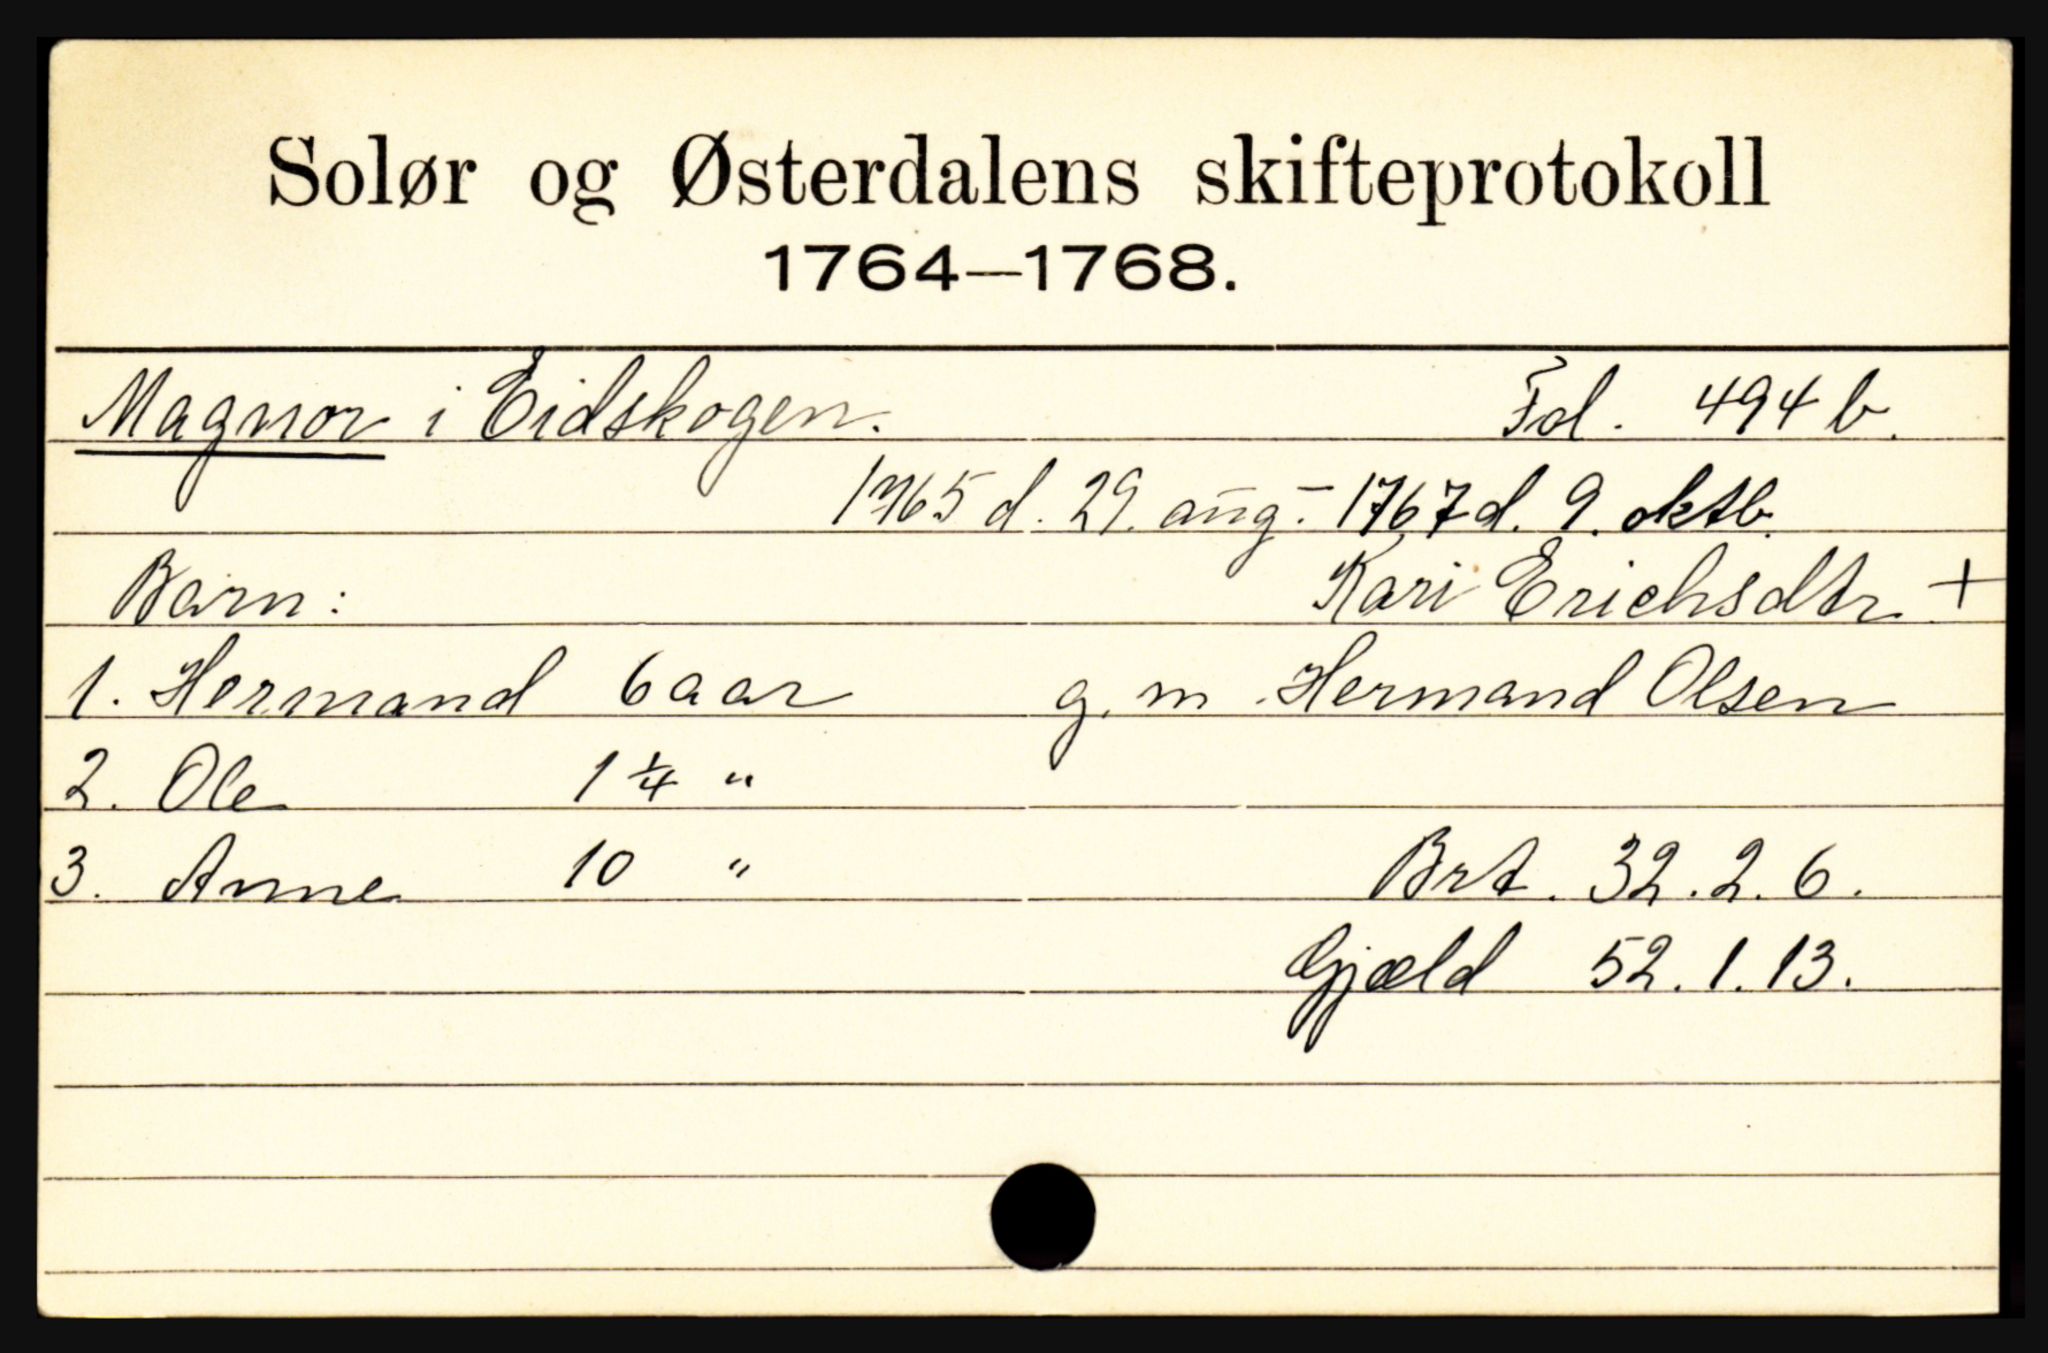 Solør og Østerdalens skifteprotokoll
1764—1768.
Magnor i Eidskogen. Fol. 494 b.
1765 d. 29. aug. - 1767 d. 9. oktb.
Barn: Kari Erichsdtr +
1. Hermand 6 aar g. m. Hermand Olsen
2. Ole 1 1/4 "
3. Anne 10 " Brt. 32. 2. 6.
Gjæld 52. 1. 13.